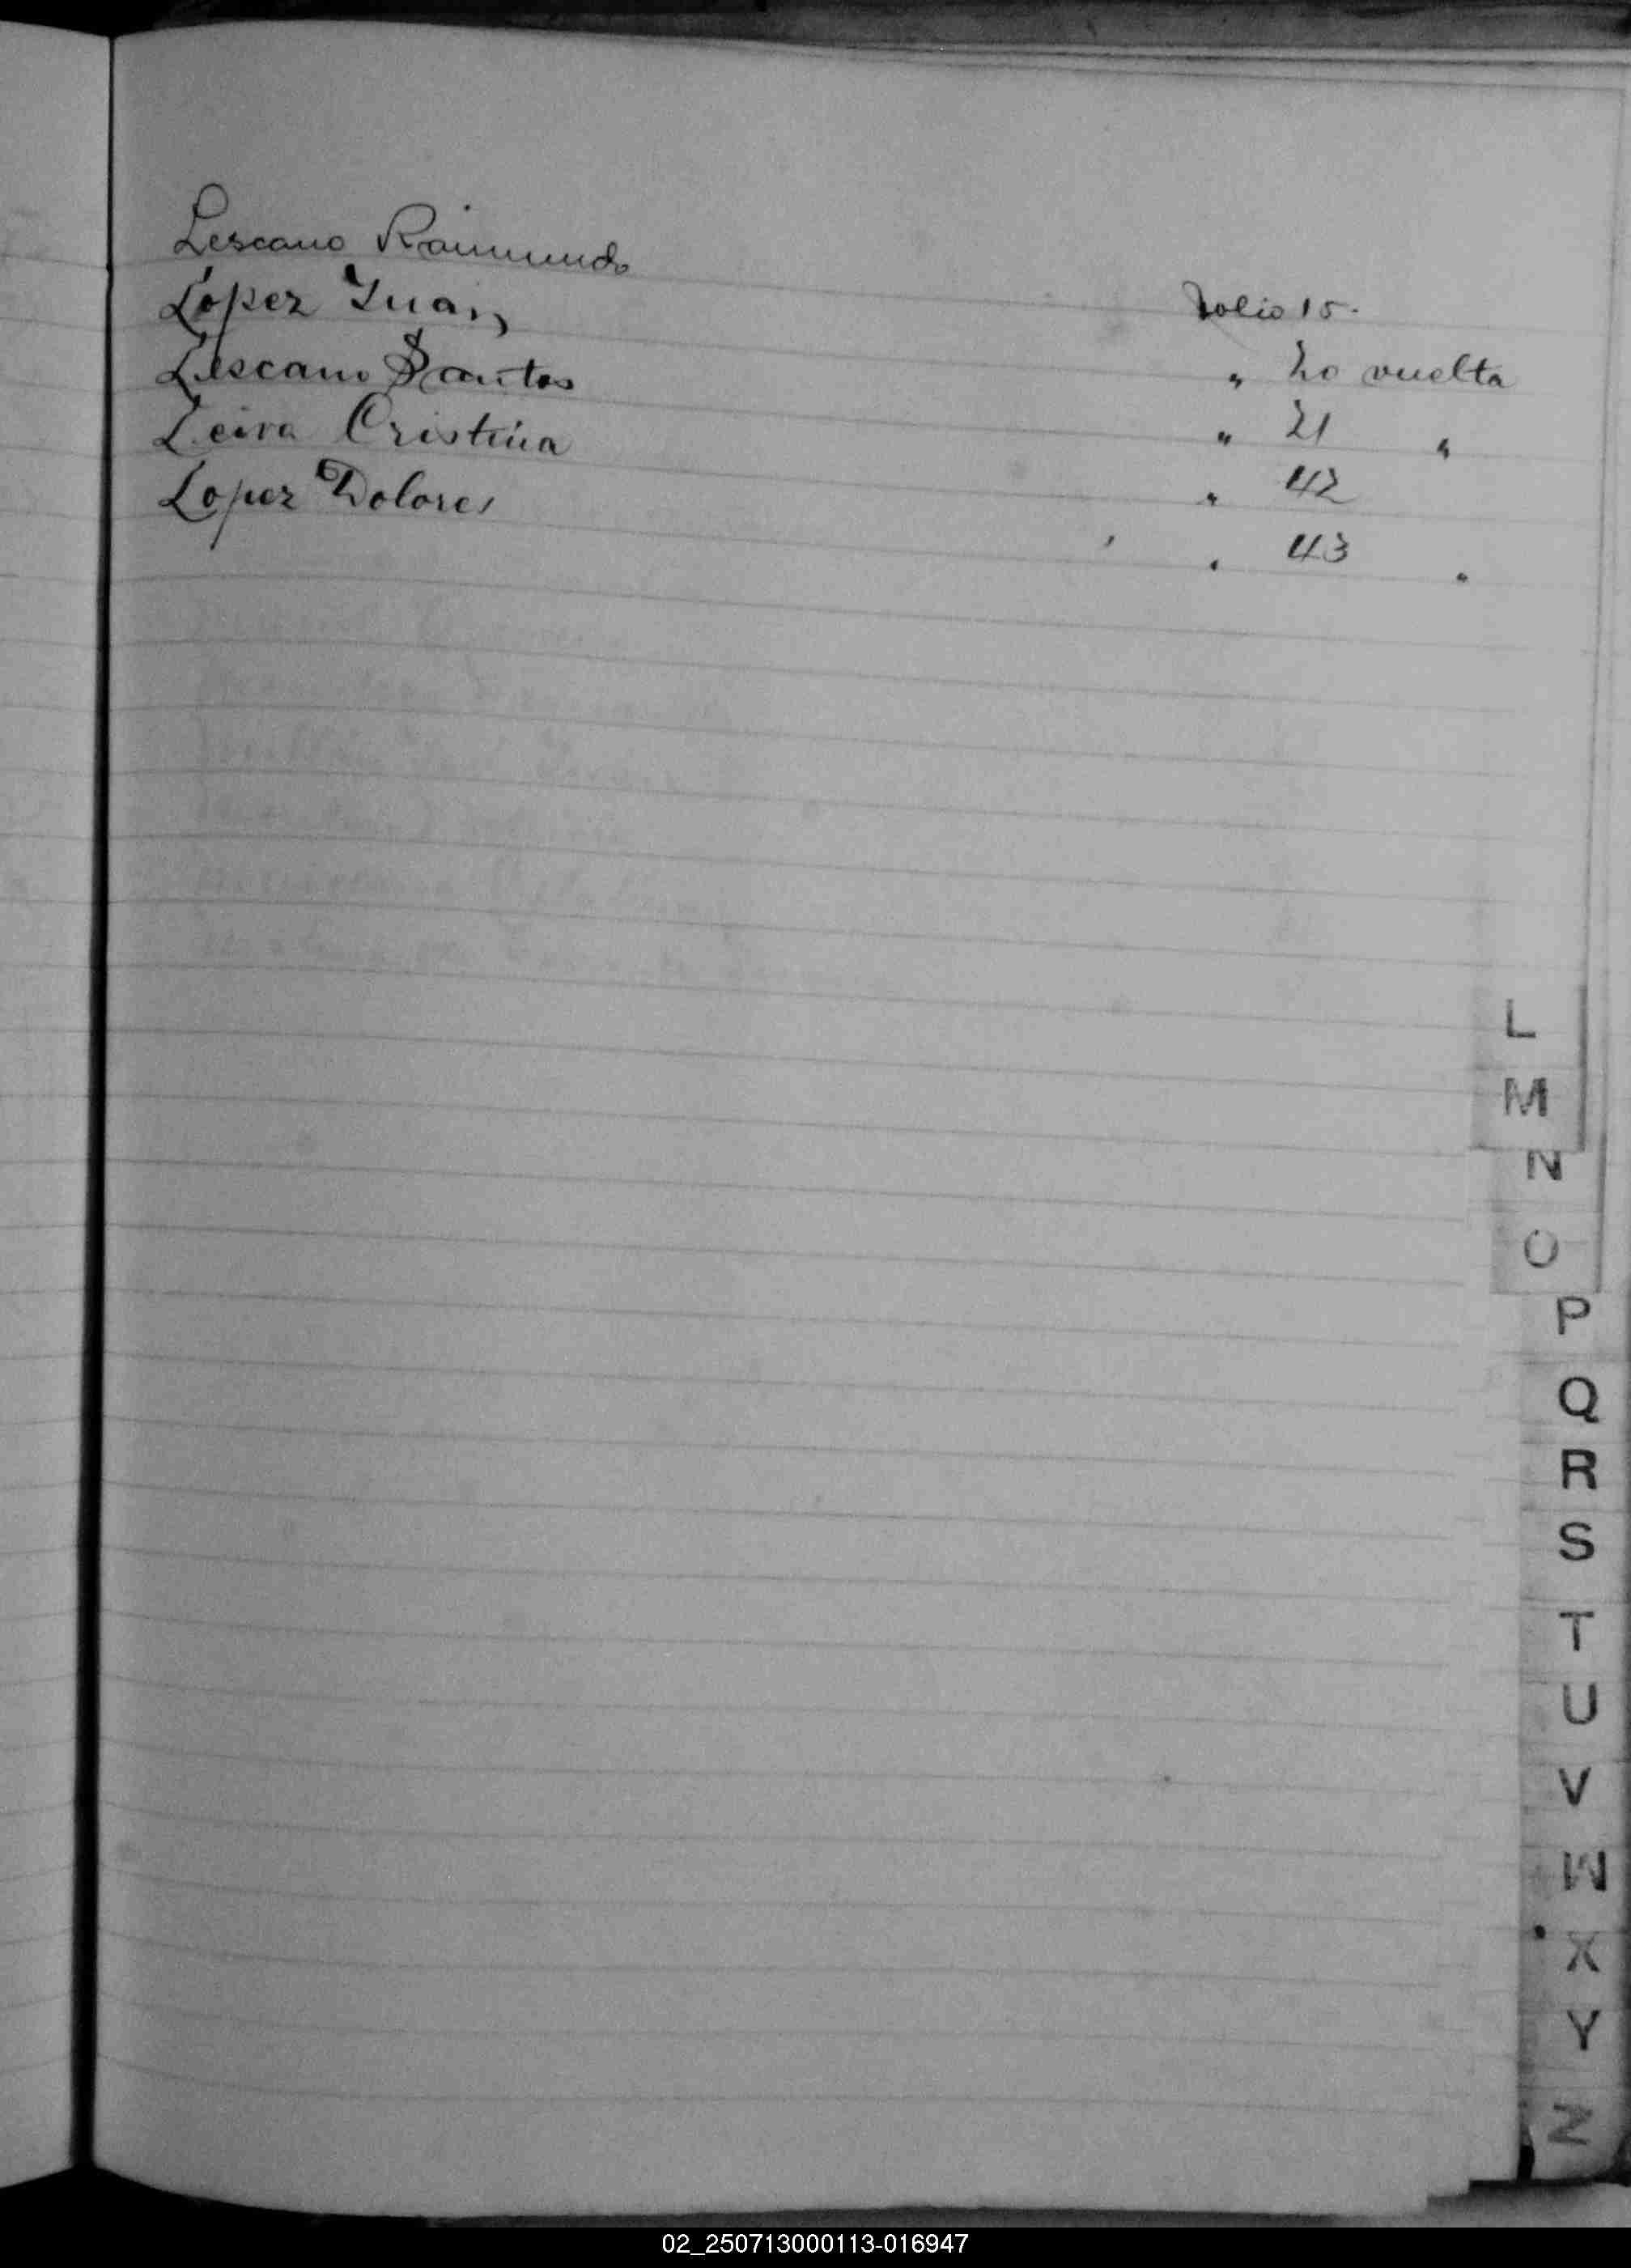 Lescano Raimundo Folio 15.
López Juan " 20 vuelta
Lescano Santos " 21 "
Leiva Cristina " 42
Lopez Dolores " 43 "
L
M
N
O
P
Q
R
S
T
U
V
W
X
Y
Z
02_250713000113-016947